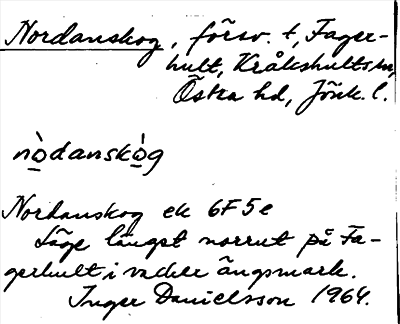 Nordanskog, försv. t, Fager-
hult, Kråkshults sn,
Östra hd, Jönk. l.
nòdanskò̲g
Nordanskog ek 6F5e
Läge längst norrut på Fa-
gerhult, i vacker ängsmark.
Inger Danielsson 1964.